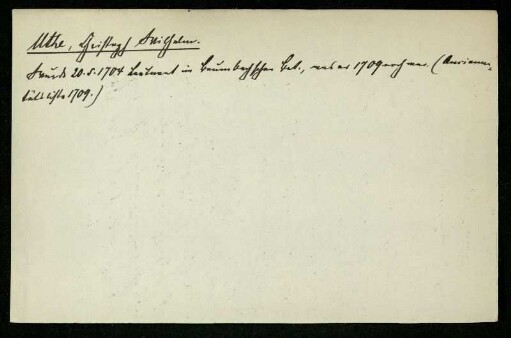 Uthe, Christoph Wilhelm.
Wurde 20.5.1704 Leutnant im Baumbachschen Bat., was er 1709 noch war. (Ancienni-
tätsliste 1709.)